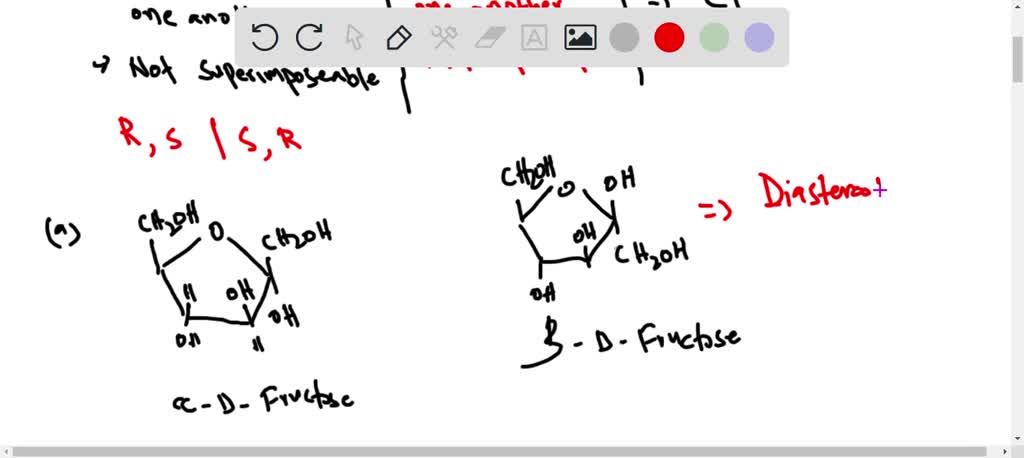 one ano
one another
→ Not superimposeable
R, S | S, R
(a)
CH2OH O CH2OH
H OH OH
OH H
α-D-Fructose
CH2OH O OH
OH CH2OH
OH
β-D-Fructose
=> Diastereo
A